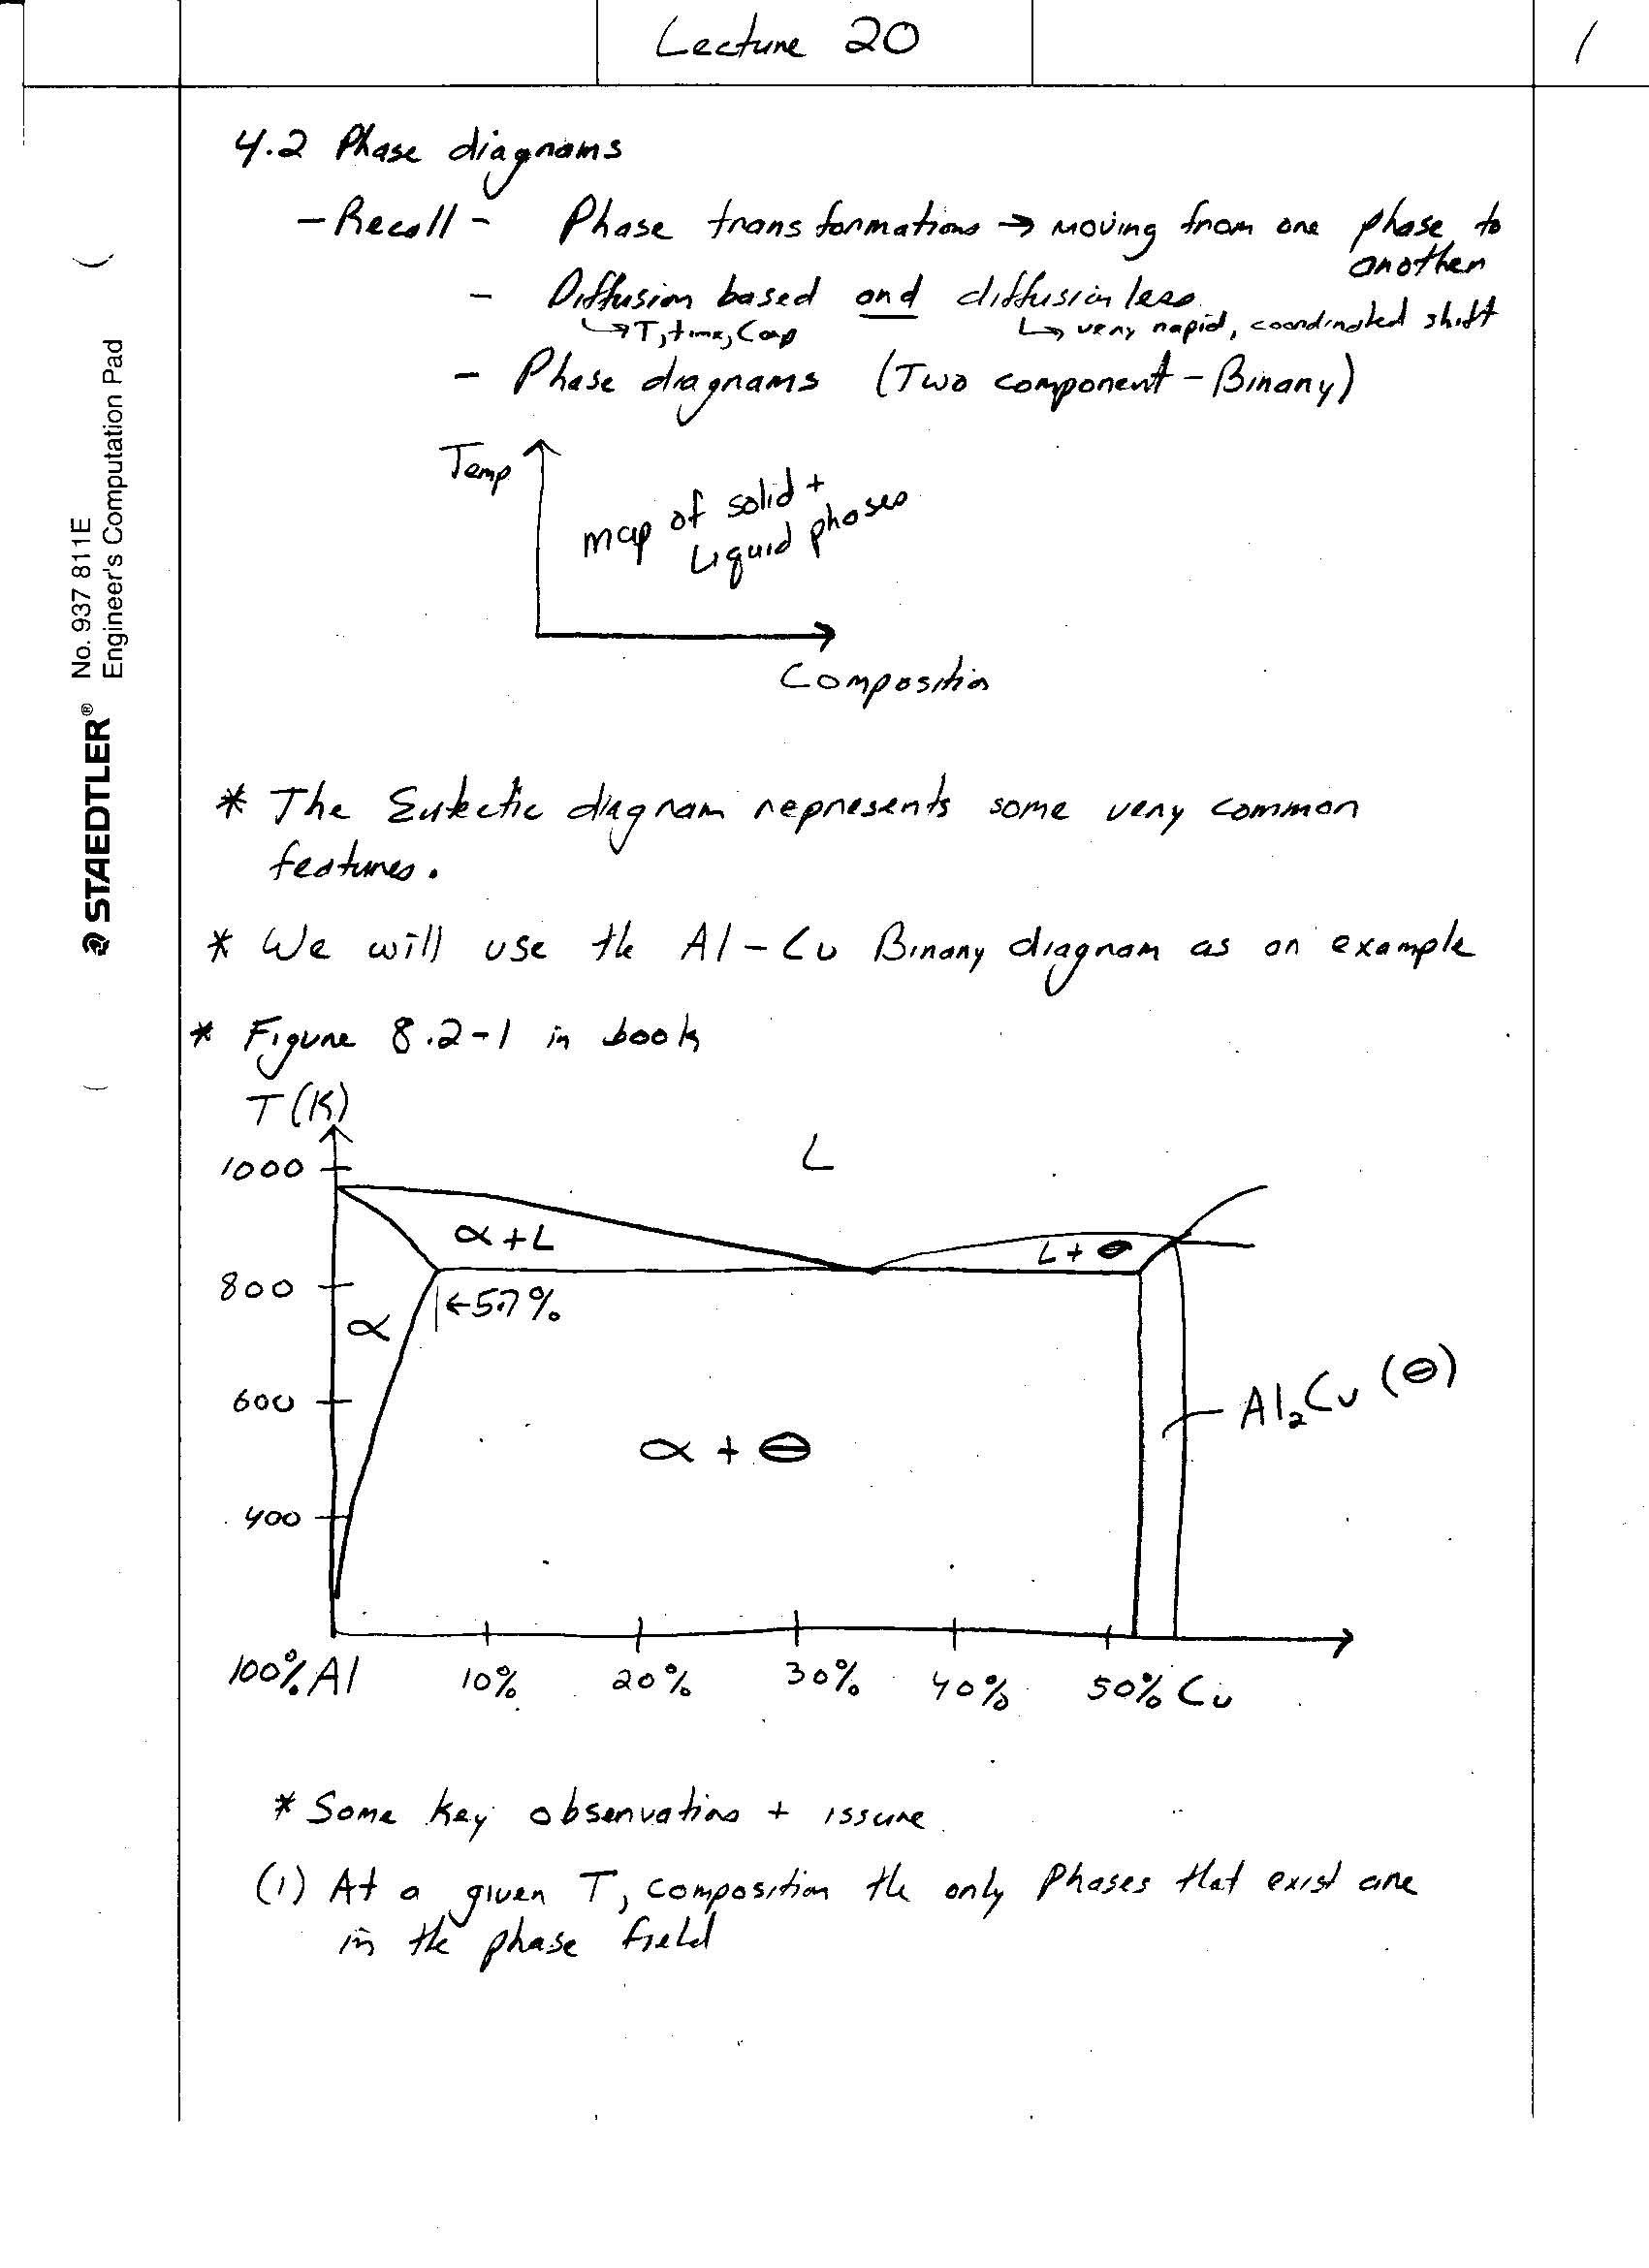 Lecture 20
1
4.2 Phase diagrams
- Recall - Phase transformations → moving from one phase to
another
- Diffusion based and diffusionless
↳ T, time, Comp ↳ very rapid, coordinated shift
- Phase diagrams (Two component - Binary)
Temp
map of solid +
Liquid phases
Composition
* The Eutectic diagram represents some very common
features.
* We will use the Al-Cu Binary diagram as an example
* Figure 8.2-1 in book
T (K)
1000
L
α + L
L + θ
800
← 5.7%
α
600
Al₂Cu (θ)
α + θ
400
100% Al 10% 20% 30% 40% 50% Cu
* Some key observations + issue
(1) At a given T, composition the only Phases that exist are
in the phase field
STAEDTLER® No. 937 811E
Engineer's Computation Pad